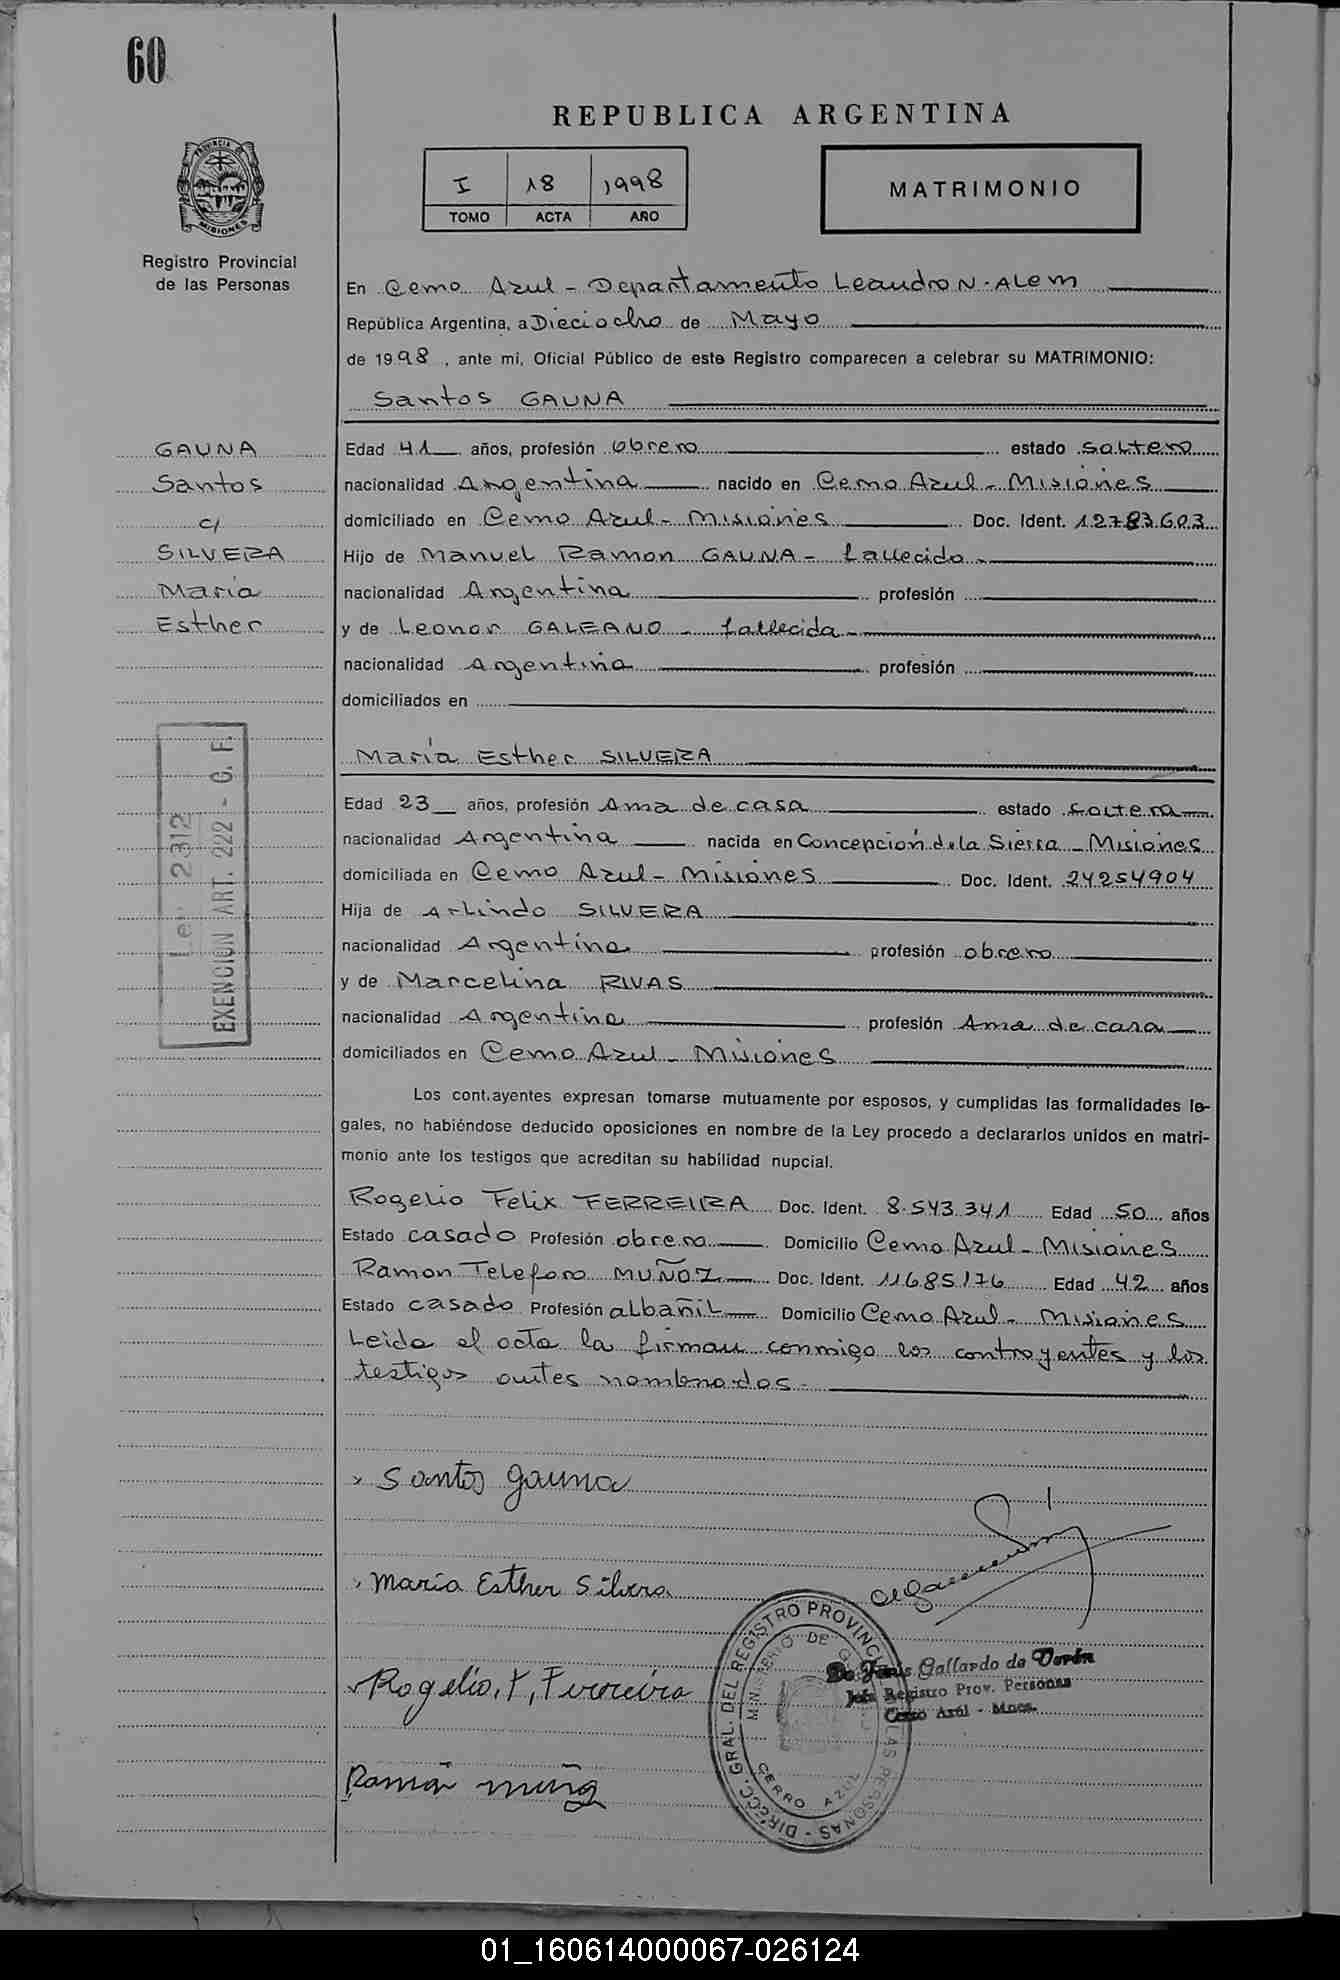 60
REPUBLICA ARGENTINA
PROVINCIA DE
MISIONES
I 18 1998
TOMO ACTA AÑO
MATRIMONIO
Registro Provincial
de las Personas
En Cerro Azul - Departamento Leandro N. Alem
República Argentina, a Dieciocho de Mayo
de 1998, ante mi, Oficial Público de este Registro comparecen a celebrar su MATRIMONIO:
Santos GAUNA
GAUNA
Santos
c/
SILVERA
Maria
Esther
Edad 41 años, profesión obrero estado soltero
nacionalidad Argentina nacido en Cerro Azul - Misiones
domiciliado en Cerro Azul - Misiones Doc. Ident. 12783.603
Hijo de Manuel Ramon GAUNA - fallecido -
nacionalidad Argentina profesión
y de Leonor GALEANO - fallecida -
nacionalidad Argentina profesión
domiciliados en
María Esther SILVERA
Ley 2312
EXENCION ART. 222 - C. F.
Edad 23 años, profesión Ama de casa estado soltera
nacionalidad Argentina nacida en Concepción de la Sierra - Misiones
domiciliada en Cerro Azul - Misiones Doc. Ident. 24254904
Hija de Arlindo SILVERA
nacionalidad Argentina profesión obrero
y de Marcelina RIVAS
nacionalidad Argentina profesión Ama de casa
domiciliados en Cerro Azul - Misiones
Los cont.ayentes expresan tomarse mutuamente por esposos, y cumplidas las formalidades le-
gales, no habiéndose deducido oposiciones en nombre de la Ley procedo a declararlos unidos en matri-
monio ante los testigos que acreditan su habilidad nupcial.
Rogelio Felix FERREIRA Doc. Ident. 8.543.341 Edad 50 años
Estado casado Profesión obrero Domicilio Cerro Azul - Misiones
Ramon Telefono MUÑOZ Doc. Ident. 11685176 Edad 42 años
Estado casado Profesión albañil Domicilio Cerro Azul - Misiones
Leida el acta la firman conmigo los contrayentes y los
testigos antes nombrados -
Santos Gauna
Maria Esther Silvera
Rogelio, F, Ferreira
Ramón Muñoz
DIRECC. GRAL. DEL REGISTRO PROVINCIAL DE LAS PERSONAS -
MINISTERIO DE
CERRO AZUL
Gallardo de Verón
Jefa Registro Prov. Personas
Cerro Azul - Mnes.
01_160614000067-026124